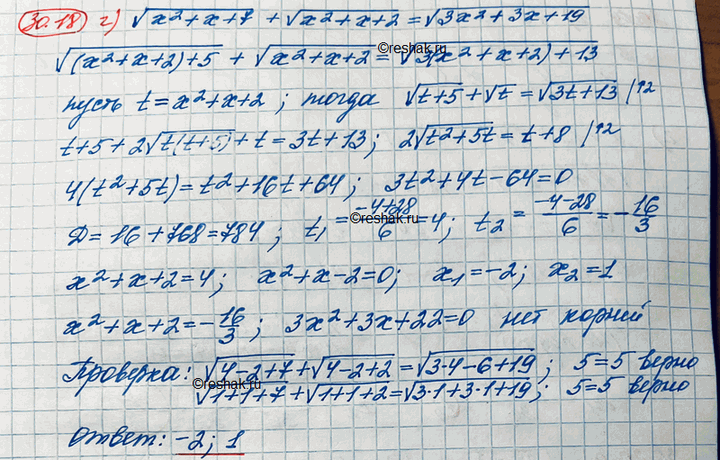 30.18 г) √(x²+x+7) + √(x²+x+2) = √(3x²+3x+19)
√((x²+x+2)+5) + √(x²+x+2) = √(3(x²+x+2)+13)
©reshak.ru
пусть t=x²+x+2 ; тогда √(t+5)+√t=√(3t+13) |^2
t+5+2√(t(t+5))+t=3t+13; 2√(t²+5t)=t+8 |^2
4(t²+5t)=t²+16t+64; 3t²+4t-64=0
D=16+768=784 ; t₁=(-4+28)/6=4; t₂=(-4-28)/6=-16/3
©reshak.ru
x²+x+2=4; x²+x-2=0; x₁=-2; x₂=1
x²+x+2=-16/3; 3x²+3x+22=0 нет корней
Проверка: √(4-2+7)+√(4-2+2)=√(3·4-6+19); 5=5 верно
©reshak.ru
√(1+1+7)+√(1+1+2)=√(3·1+3·1+19); 5=5 верно
Ответ: -2; 1